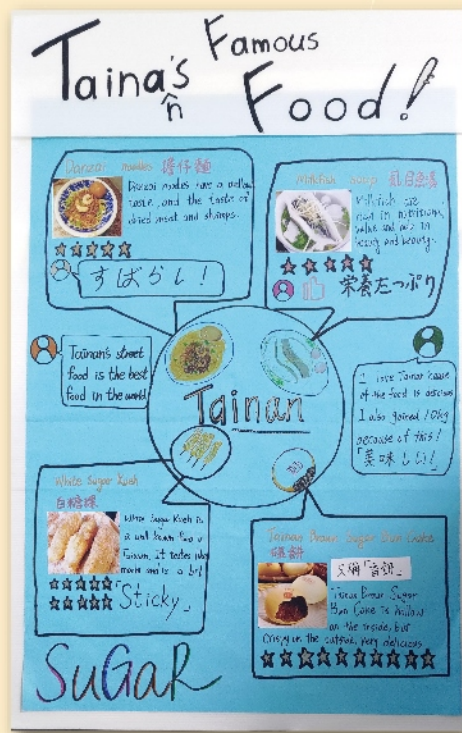 Taina's Famous
n
Food!
Danzai noodles 擔仔麵
Danzai noodles have a mellow
taste, and the taste of
dried meat and shrimps.
すばらし!
Milkfish soup 虱目魚湯
Milkfish are
rich in nutritional
value and
beauty and beauty.
栄養たっぷり
Tainan's street
food is the best
food in the world
Tainan
I love Tainan cause
of the food is delicious
I also gained 10kg
because of this!
「美味しい!」
White Sugar Kueh
白糖粿
White Sugar Kueh is
a well known food in
Tainan. It tastes like
mochi and is a bit
「Sticky」
Tainan Brown Sugar Bun Cake
椪餅
又稱「香餅」
Tainan Brown Sugar
Bun Cake is hollow
on the inside, but
crispy on the outside, very delicious
SuGaR